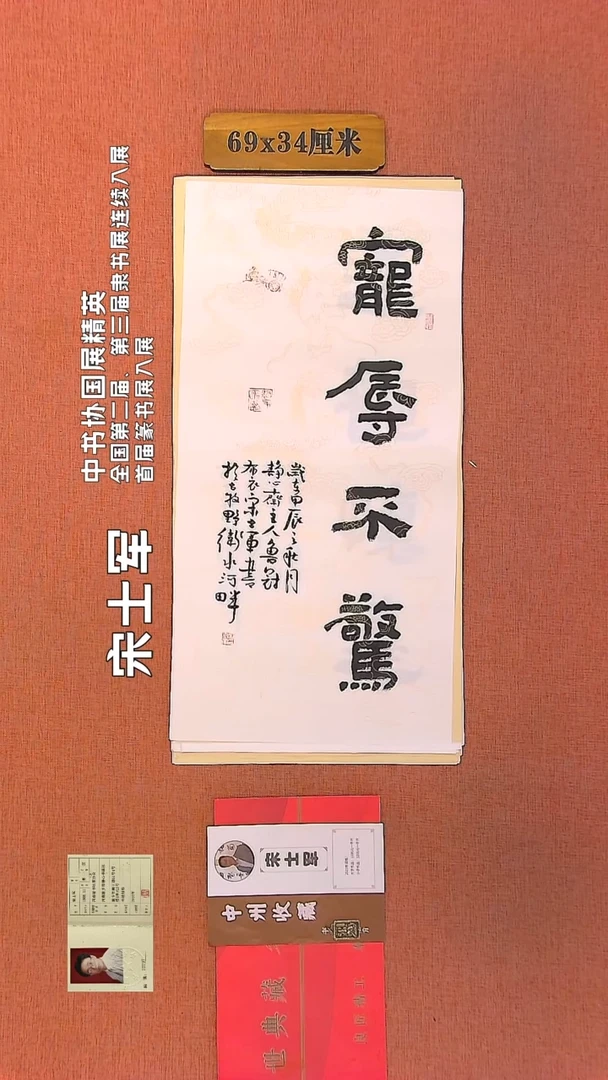 69x34厘米
寵辱不驚
歲在甲辰之秋月
静心齋主人魯郡
布衣宋士軍書
於古牧野衛水河畔
中书协国展精英
全国第二届、第三届隶书展连续入展
首届篆书展入展
宋士军
宋士军
中州收藏
世典藏